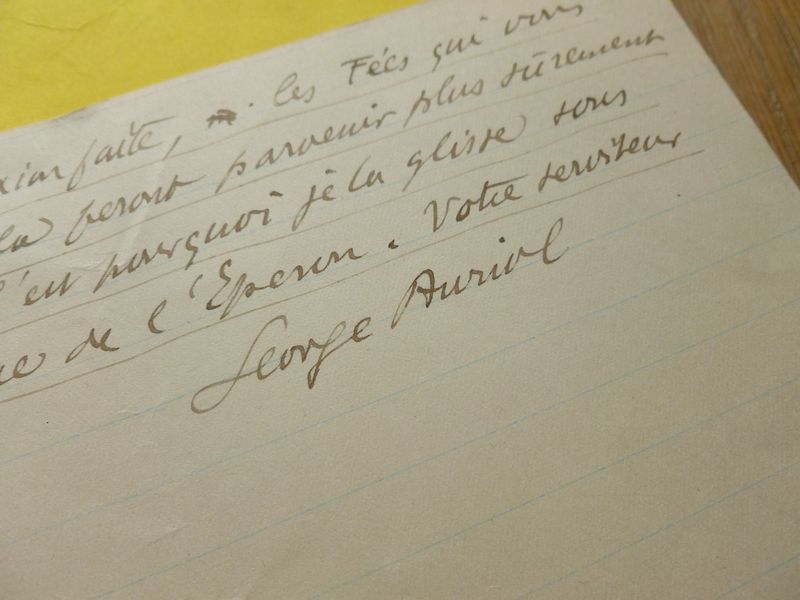 faite, les Fées qui vous
la feront parvenir plus sûrement
C'est pourquoi je la glisse sous
de l'Eperon. Votre serviteur
George Auriol